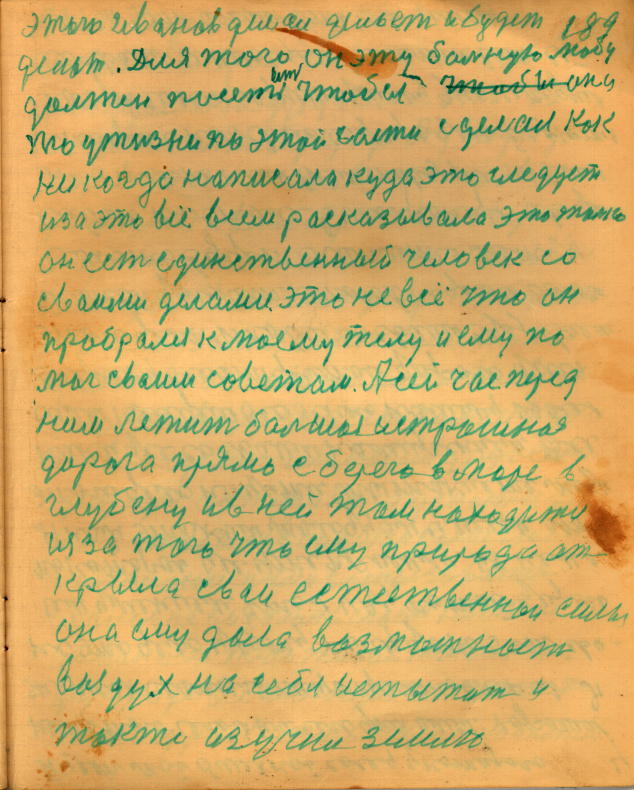 этого Иванов делал делает и будет 189
делат. Для того он эту болную тобу
должен посетит чтобы она
по утизни по этой части сделал как
никогда написала куда это следует
из за это всё всем расказывала это только
он ест единственный человек со
своими делами. это не всё что он
пробрался к моему телу и ему по
мог своим советам. А сей час перед
ним лежит большая и страшная
дорога прямо с берега в море в
глубену и в ней там находитс
из за того что ему природа от
крыла сваи естественной силы
она ему дала возможность
воздух на себя испытат и
также изучил землю